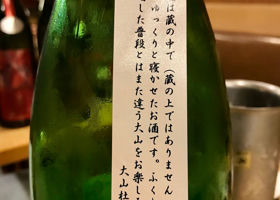 は蔵の中で（蔵の上ではありません
ゆっくりと寝かせたお酒です。ふくよ
した普段とはまた違う大山をお楽し
大山杜